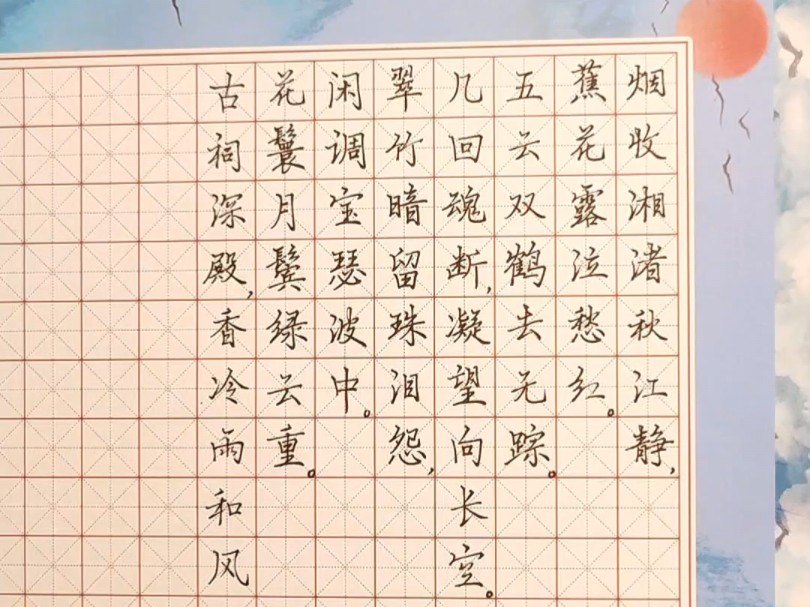 烟收湘渚秋江静，
蕉花露泣愁红。
五云双鹤去无踪。
几回魂断，凝望向长空。
翠竹暗留珠泪怨，
闲调宝瑟波中。
花鬟月鬓绿云重。
古祠深殿，香冷雨和风